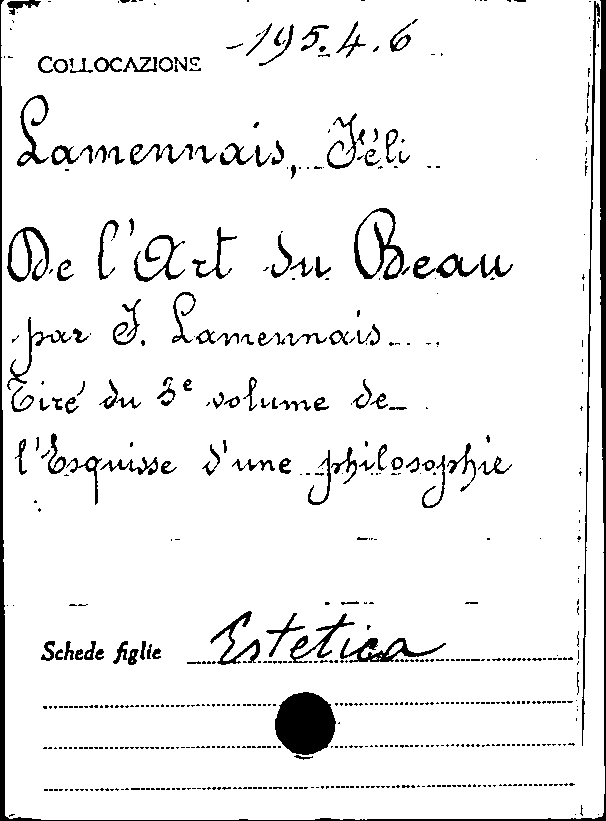 COLLOCAZIONE -195.4.6
Lamennais, Féli
De l'Art du Beau
par F. Lamennais
Tiré du 3e volume de
l'Esquisse d'une philosophie
Schede figlie Estetica